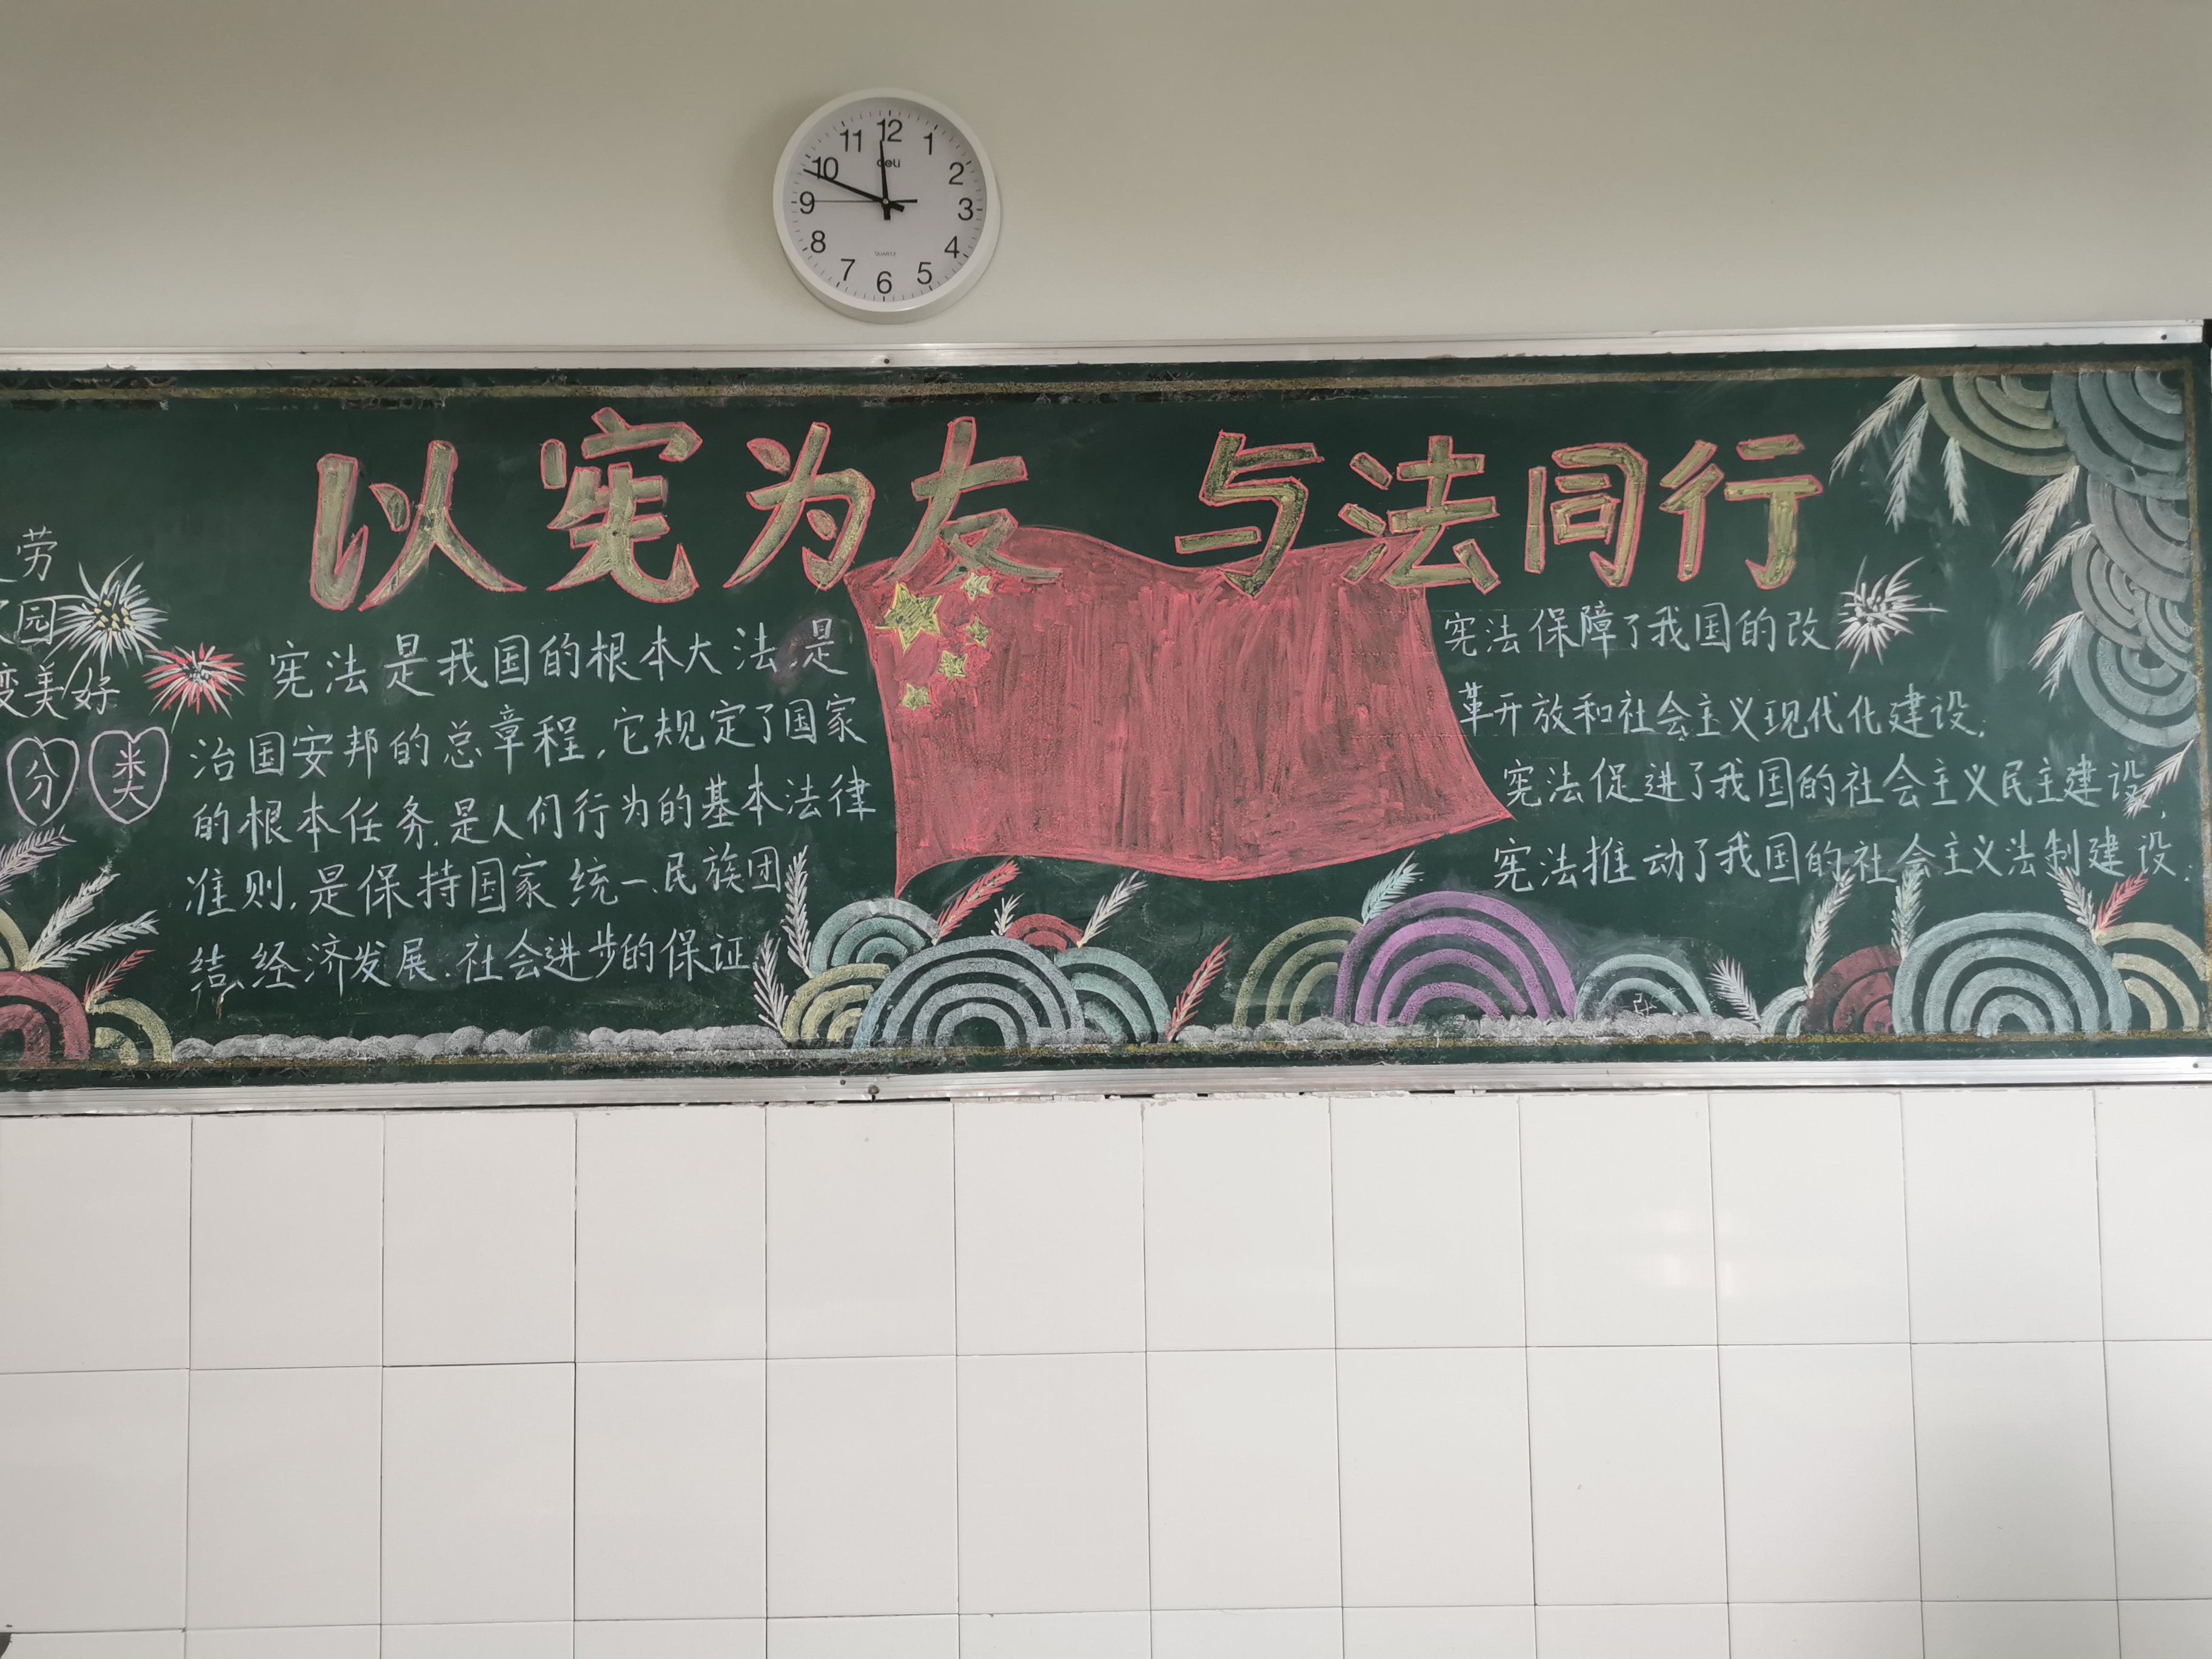 12
11
1
10
2
9
3
8
4
7
5
6
deli
QUARTZ
以宪为友 与法同行
劳
园
变美好
分类
宪法是我国的根本大法.是
治国安邦的总章程,它规定了国家
的根本任务.是人们行为的基本法律
准则,是保持国家统一、民族团
结、经济发展.社会进步的保证.
宪法保障了我国的改
革开放和社会主义现代化建设;
宪法促进了我国的社会主义民主建设;
宪法推动了我国的社会主义法制建设;